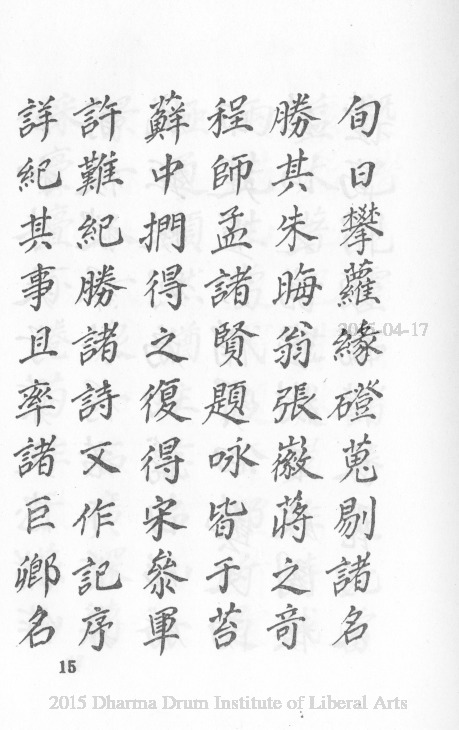 旬日攀蘿緣磴蒐剔諸名
勝其朱晦翁張㣲蔣之奇
程師孟諸賢題咏皆于苔
蘚中捫得之復得宋叅軍
許難紀勝諸詩文作記序
詳紀其事且率諸巨卿名
15
2015-04-17
2015 Dharma Drum Institute of Liberal Arts